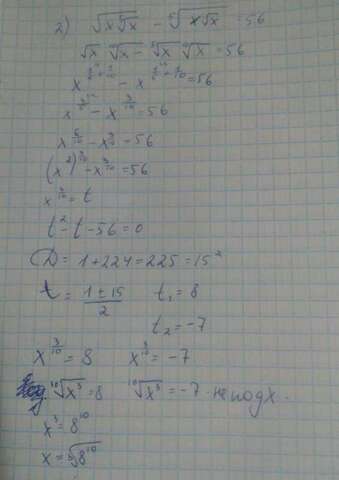 2) √(x ⁵√x) - ⁵√(x√x) = 56
√x ¹⁰√x - ⁵√x ¹⁰√x = 56
x^(1/2+1/10) - x^(1/5+1/10) = 56
x^(3/5) - x^(3/10) = 56
x^(6/10) - x^(3/10) = 56
(x²)^(3/10) - x^(3/10) = 56
x^(3/10) = t
t² - t - 56 = 0
D = 1 + 224 = 225 = 15²
t = (1 ± 15)/2 t₁ = 8
t₂ = -7
x^(3/10) = 8 x^(3/10) = -7
¹⁰√x³ = 8 ¹⁰√x³ = -7 - не подх.
x³ = 8¹⁰
x = ³√8¹⁰